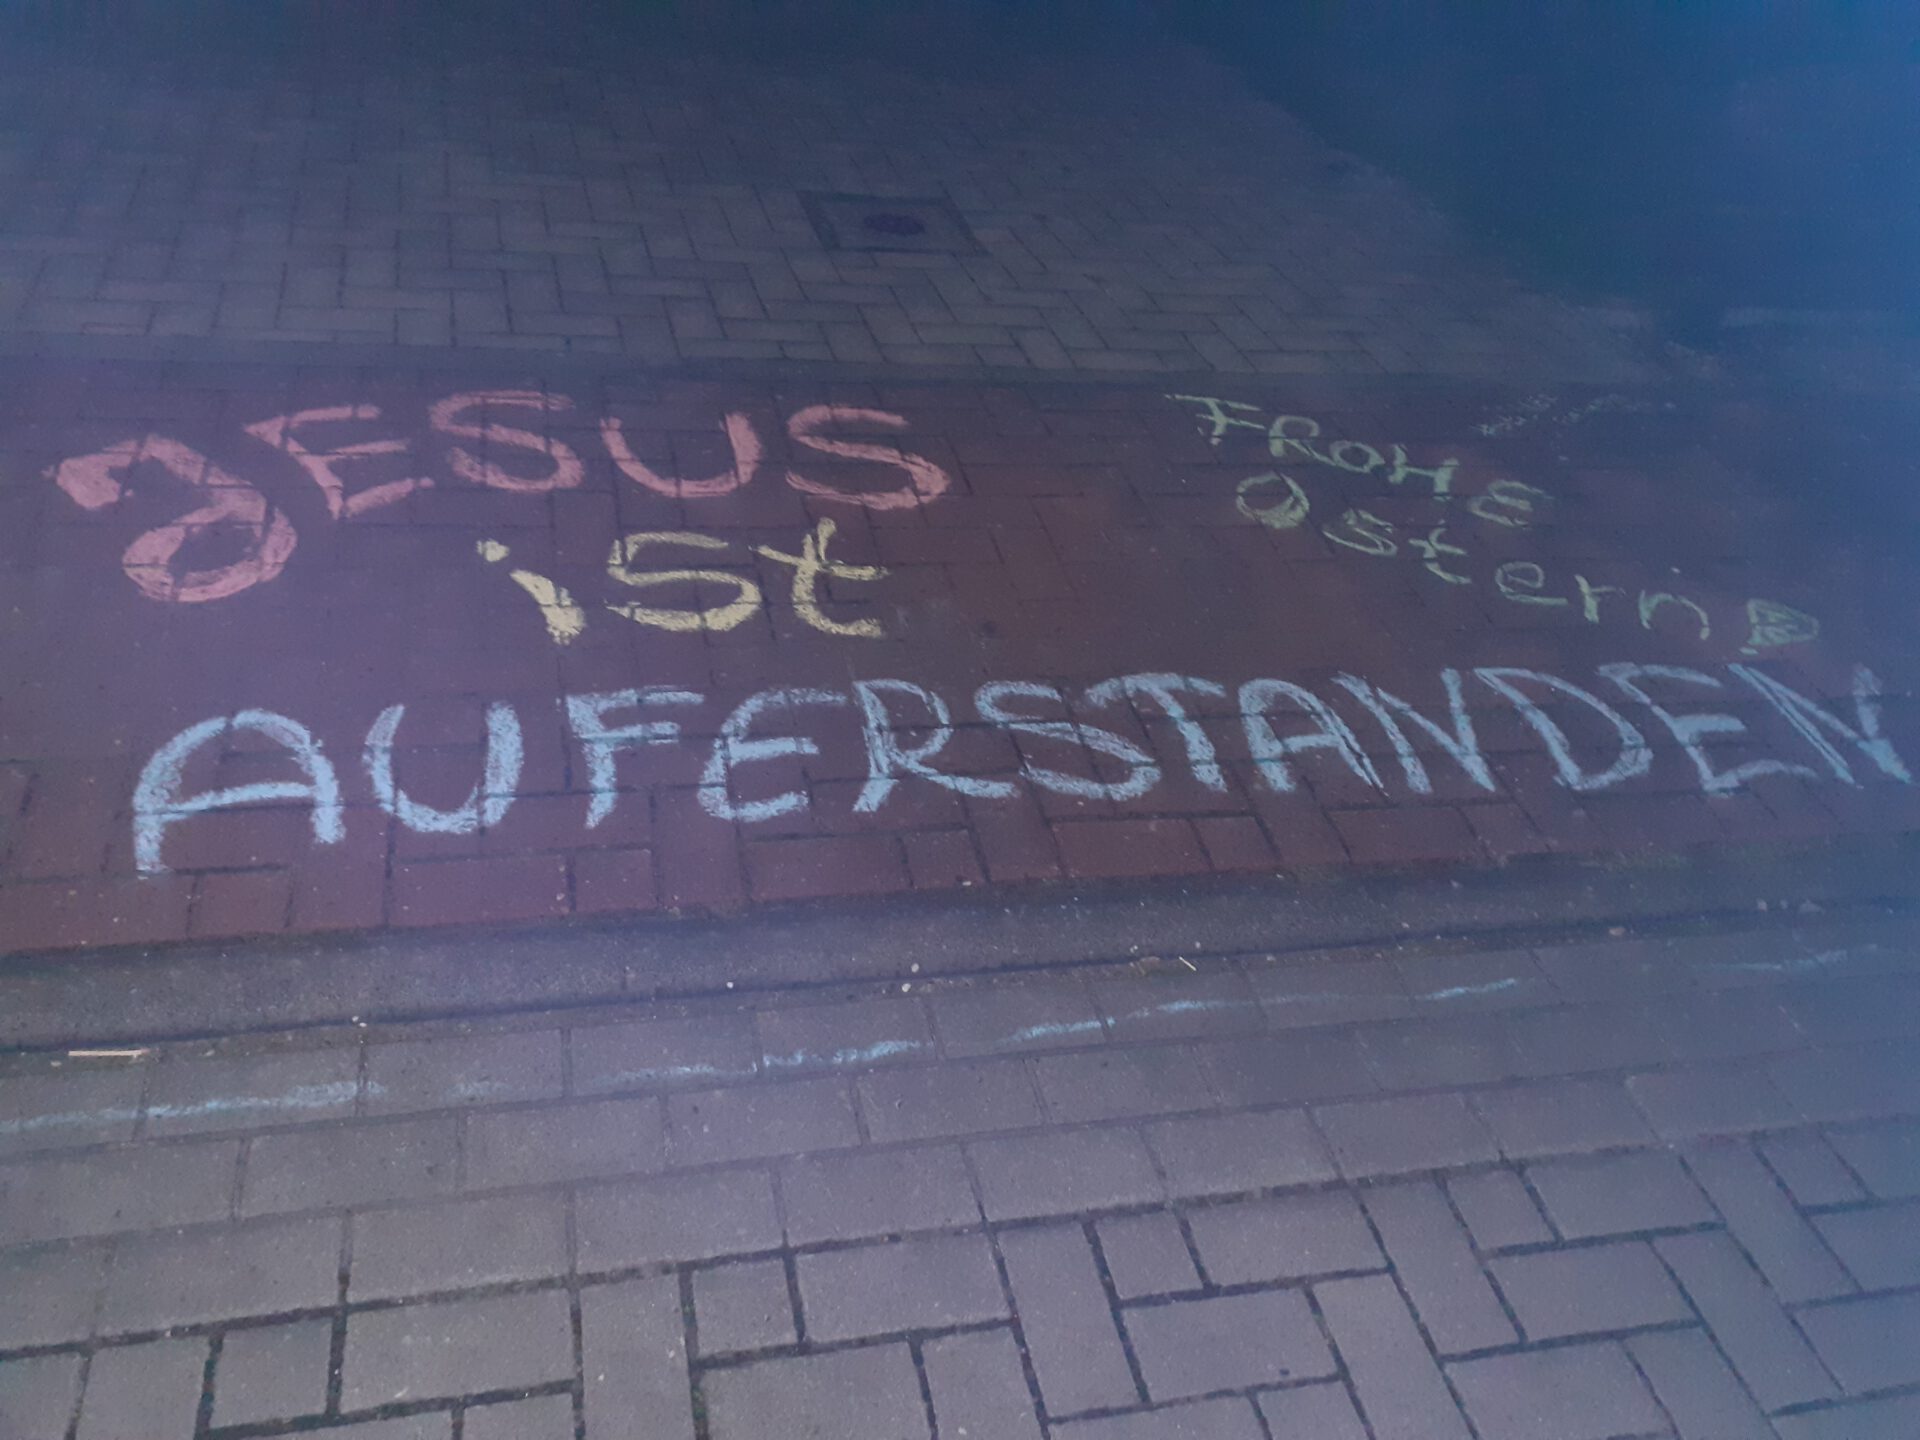 JESUS
ist
AUFERSTANDEN
FROHE
Ostern